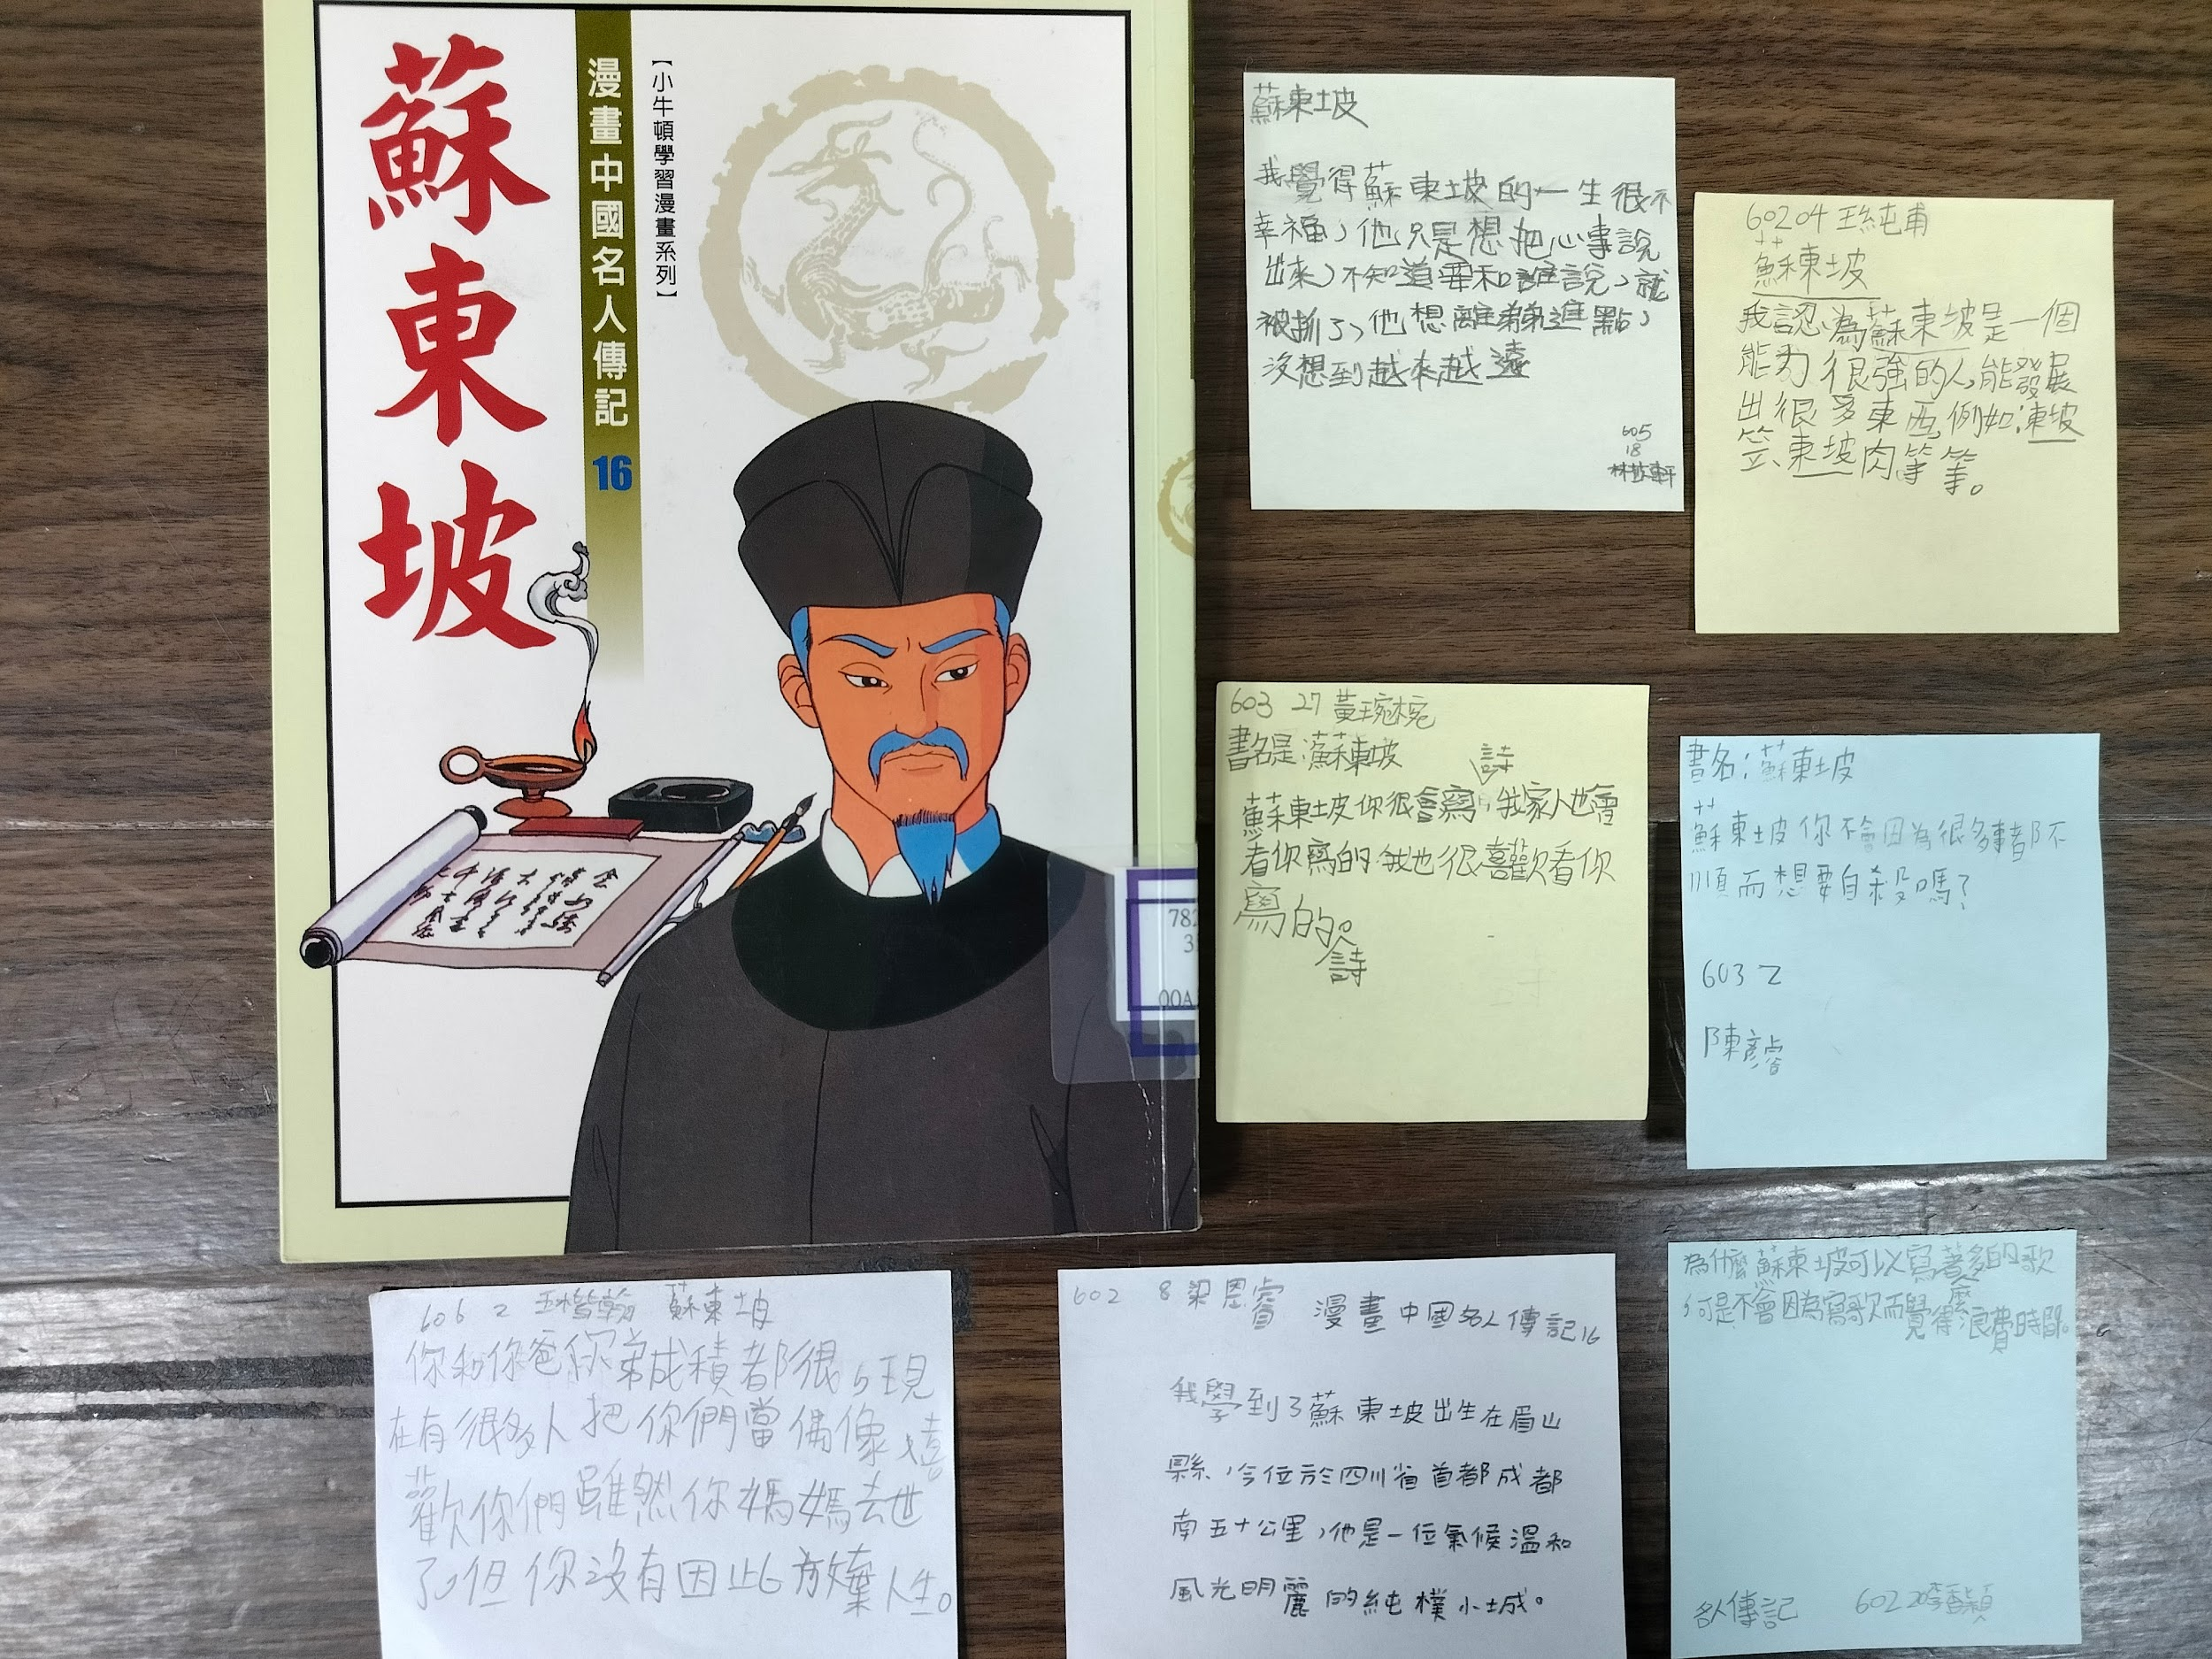 蘇東坡
漫畫中國名人傳記16
【小牛頓學習漫畫系列】
蘇東坡
我覺得蘇東坡的一生很不
幸福,他只是想把心事說
出來,不知道要和誰說,就
被抓了,他想離弟弟進點,
沒想到越來越遠
605
18
林 軒
60204 王純甫
蘇東坡
我認為蘇東坡是一個
能力很強的人,能發展
出很多東西,例如:東坡
笠、東坡肉等等。
603 27 黃琬椀
書名是:蘇東坡
蘇東坡你很會寫詩,我家人也會
看你寫的,我也很喜歡看你
寫的詩。
書名:蘇東坡
蘇東坡你不會因為很多事都不
順而想要自殺嗎?
603 2
陳彥睿
782
3
00A
606 2 王 翰 蘇東坡
你和你爸你弟成積都很ㄅ現
在有很多人把你們當偶像喜
歡你們雖然你媽媽去世
了,但你沒有因此放棄人生。
602 8 梁恩睿 漫畫中國名人傳記16
我學到了蘇東坡出生在眉山
縣,今位於四川省首都成都
南五十公里,他是一位氣候溫和
風光明麗的純樸小城。
為什麼蘇東坡可以寫著麼多的歌
ㄎ可是不會因為寫歌而覺得浪費時間。
名人傳記 602 20李 穎